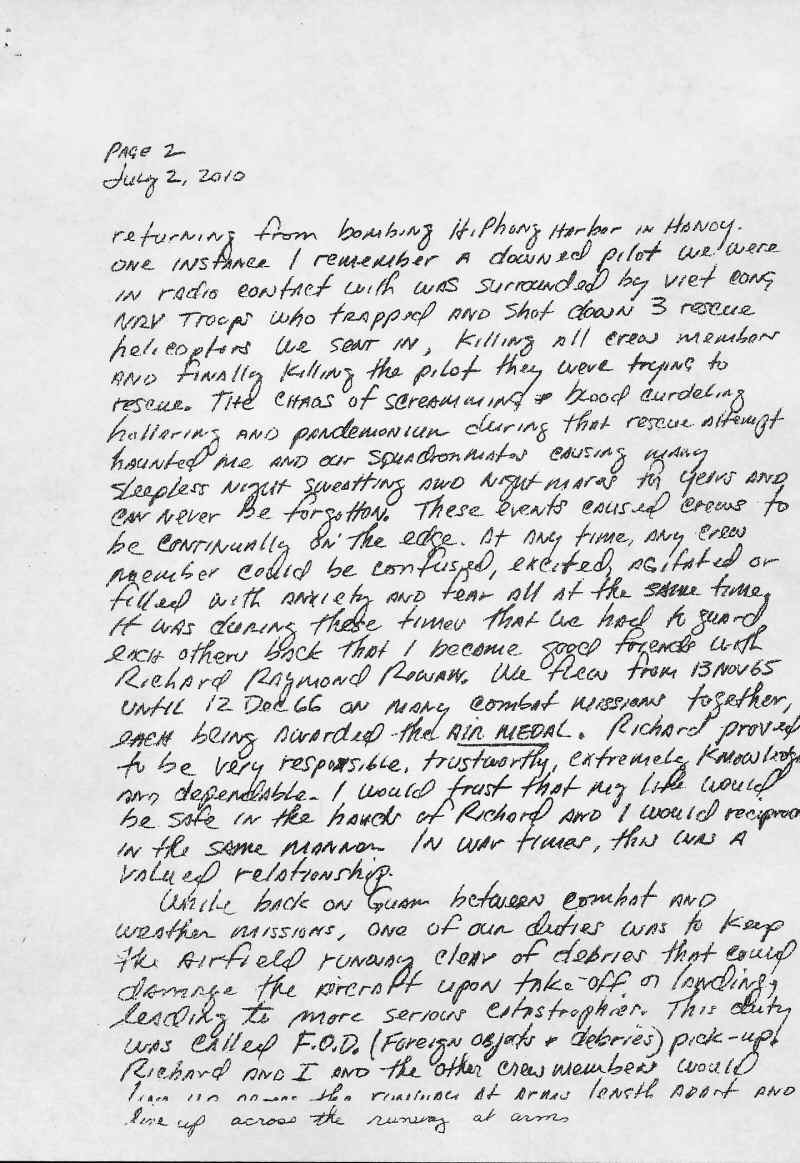 PAGE 2
July 2, 2010
returning from bombing HiPhong Harbor in Hanoy.
One instance I remember a downed pilot we were
in radio contact with was surrounded by viet cong
NRV Troops who trapped and shot down 3 rescue
helicopters we sent in, killing all crew members
and finally killing the pilot they were trying to
rescue. The chaos of screamming & blood curdeling
hollering and pandemonium during that rescue attempt
haunted me and our squadronmates causing many
sleepless night sweatting and nightmares for years and
can never be forgotton. These events caused crews to
be continually on the edge. At any time, any crew
member could be confused, excited, agitated or
filled with anxiety and fear all at the same time.
It was during these times that we had to guard
each others back that I became good friends with
Richard Raymond Rowan. We flew from 13 Nov 65
until 12 Dec 66 on many combat missions together,
each being awarded the AIR MEDAL. Richard proved
to be very responsible, trustworthy, extremely knowledg
and dependable. I would trust that my life would
be safe in the hands of Richard and I would reciproc
in the same manner. In war times, this was a
valued relationship.
While back on Guam between combat and
weather missions, one of our duties was to keep
the airfield runway clear of debries that could
damage the aircraft upon take-off or landing,
leading to more serious catastrophies. This duty
was called F.O.D. (Foreign objects & debries) pick-up.
Richard and I and the other crewmembers would
line up across the runway at arms length apart and
line up across the runway at arms